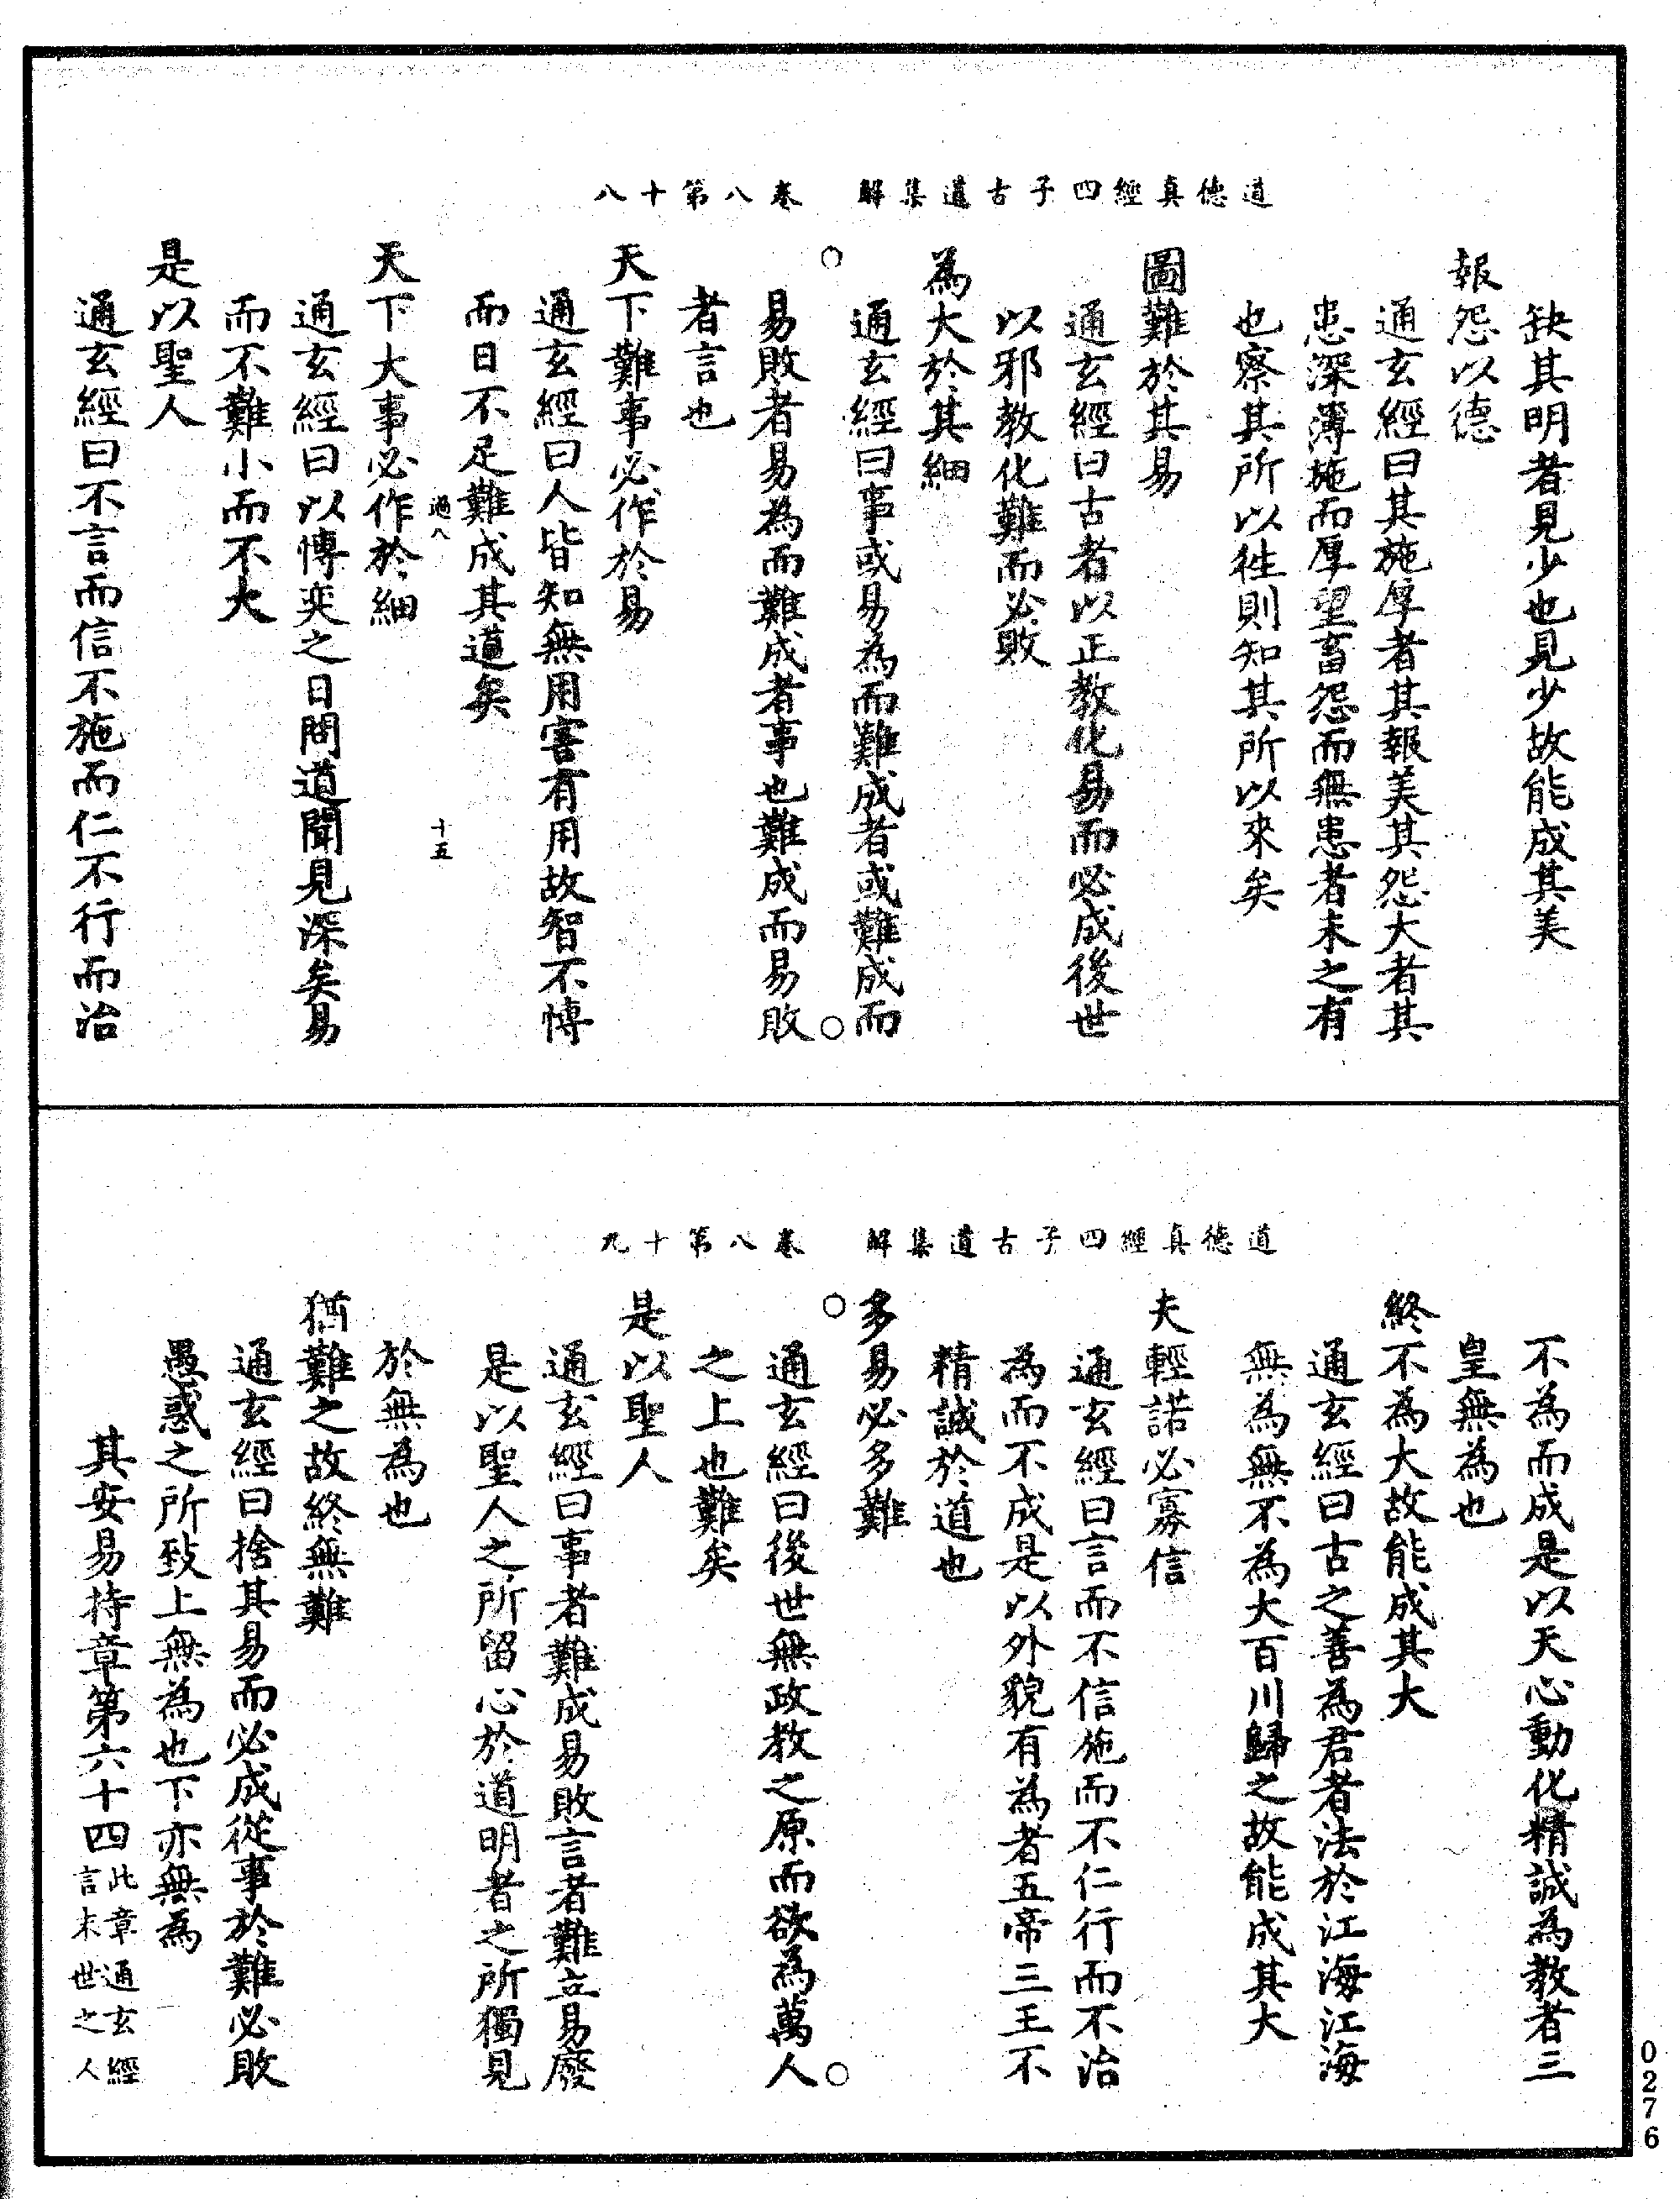 道德真經四子古道集解　卷八第十八
缺其明者見少也見少故能成其美
報怨以德
通玄經曰其施厚者其報美其怨大者其
患深薄施而厚望畜怨而無患者未之有
也察其所以徃則知其所以來矣
圖難於其易
通玄經曰古者以正教化易而必成後世
以邪教化難而必敗
為大於其細
通玄經曰事或易為而難成者或難成而
易敗者易為而難成者事也難成而易敗
者言也
天下難事必作於易
通玄經曰人皆知無用害有用故智不博
而日不足難成其道矣
過八　十五
天下大事必作於細
通玄經曰以博奕之日問道聞見深矣易
而不難小而不大
是以聖人
通玄經曰不言而信不施而仁不行而治
道德真經四子古道集解　卷八第十九
不為而成是以天心動化精誠為教者三
皇無為也
終不為大故能成其大
通玄經曰古之善為君者法於江海江海
無為無不為大百川歸之故能成其大
夫輕諾必寡信
通玄經曰言而不信施而不仁行而不治
為而不成是以外貌有為者五帝三王不
精誠於道也
多易必多難
通玄經曰後世無政教之原而欲為萬人
之上也難矣
是以聖人
通玄經曰事者難成易敗言者難立易廢
是以聖人之所留心於道明者之所獨見
於無為也
猶難之故終無難
通玄經曰捨其易而必成從事於難必敗
愚惑之所致上無為也下亦無為
其安易持章第六十四此章通玄經言末世之人
0276